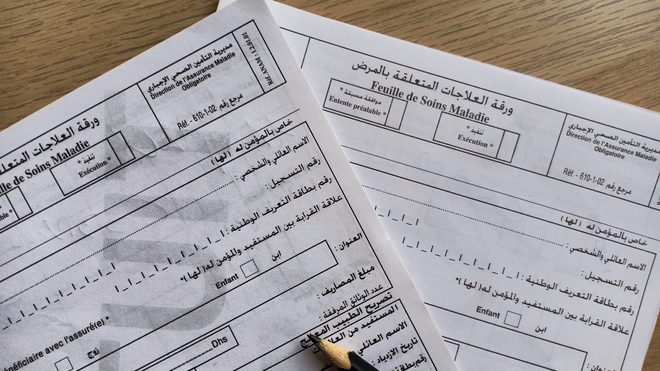 مديرية التأمين الصحي الإجباري
Direction de l'Assurance Maladie
Obligatoire
مرجع رقم Réf. -610-1-02
Réf. ANAM : 1.2.01.01
ورقة العلاجات المتعلقة
Feuille de Soins Maladie
* تنفيذ
Exécution *
خاص بالمؤمن له (لها)
الاسم العائلي والشخصي :
رقم التسجيل :
رقم بطاقة التعريف الوطنية :
علاقة القرابة بين المستفيد والمؤمن له(لها)*
Enfant ابن
زوج
bénéficiaire avec l'assuré(e)*
العنوان :
مبلغ المصاريف :
Dhs
عدد الوثائق المرفقة :
تصريح الطبيب المعالج
المستفيد من العلاجات
الاسم العائلي
تاريخ الازدياد :
رقم بطاقة
ورقة العلاجات المتعلقة بالمرض
Feuille de Soins Maladie
موافقة مسبقة *
Entente préalable *
تنفيذ *
Exécution *
مديرية التأمين الصحي الإجباري
Direction de l'Assurance Maladie
Obligatoire
Réf. - 610-1-02 مرجع رقم
خاص بالمؤمن له (لها)
الاسم العائلي والشخصي :
رقم التسجيل :
رقم بطاقة التعريف الوطنية :
علاقة القرابة بين المستفيد والمؤمن له(لها)*
Enfant ابن
العنوان :